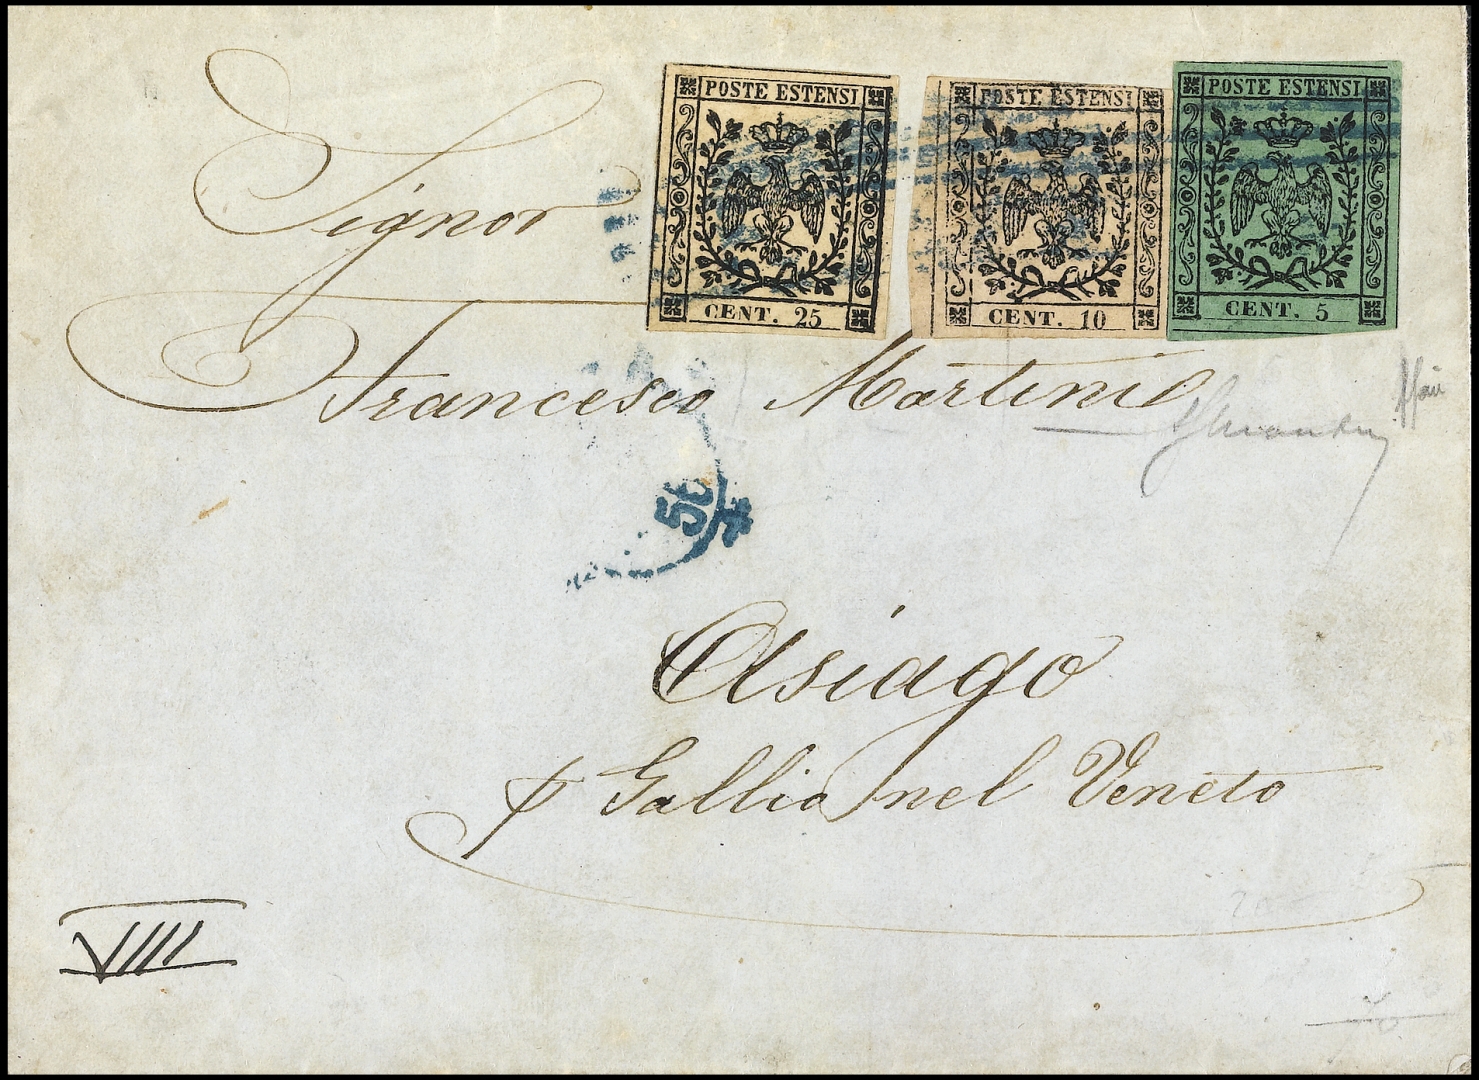 POSTE ESTENSI POSTE ESTENSI POSTE ESTENSI
CENT. 25 CENT. 10 CENT. 5
Signor
Francesco Martini
56
Asiago
p Gallio nel Veneto
VIIII